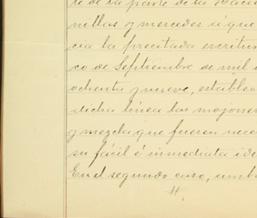 re de la parte de la Hacie
nellas y mercedes á que
cia la precitada escritur
co de Septiembre de mil o
ochenta y nueve, estable
dicha línea las mojoner
y mezcla que fueren nece
su fácil é inmediata ide
En el segundo caso, amb